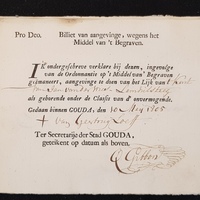 Pro Deo.
Billet van aangevinge, wegens het
Middel van 't Begraven.
IK ondergeschreve verklare bij deezen, ingevolge
van de Ordonnantie op 't Middel van 't Begraven
geëmaneert, aangevinge te doen van het Lijk van
als gehorende onder de Classis van d' onvermogende.
Gedaan binnen GOUDA, den 10 May 1805
+ van
Ter Secretarije der Stad GOUDA,
geteikent op datum als boven.